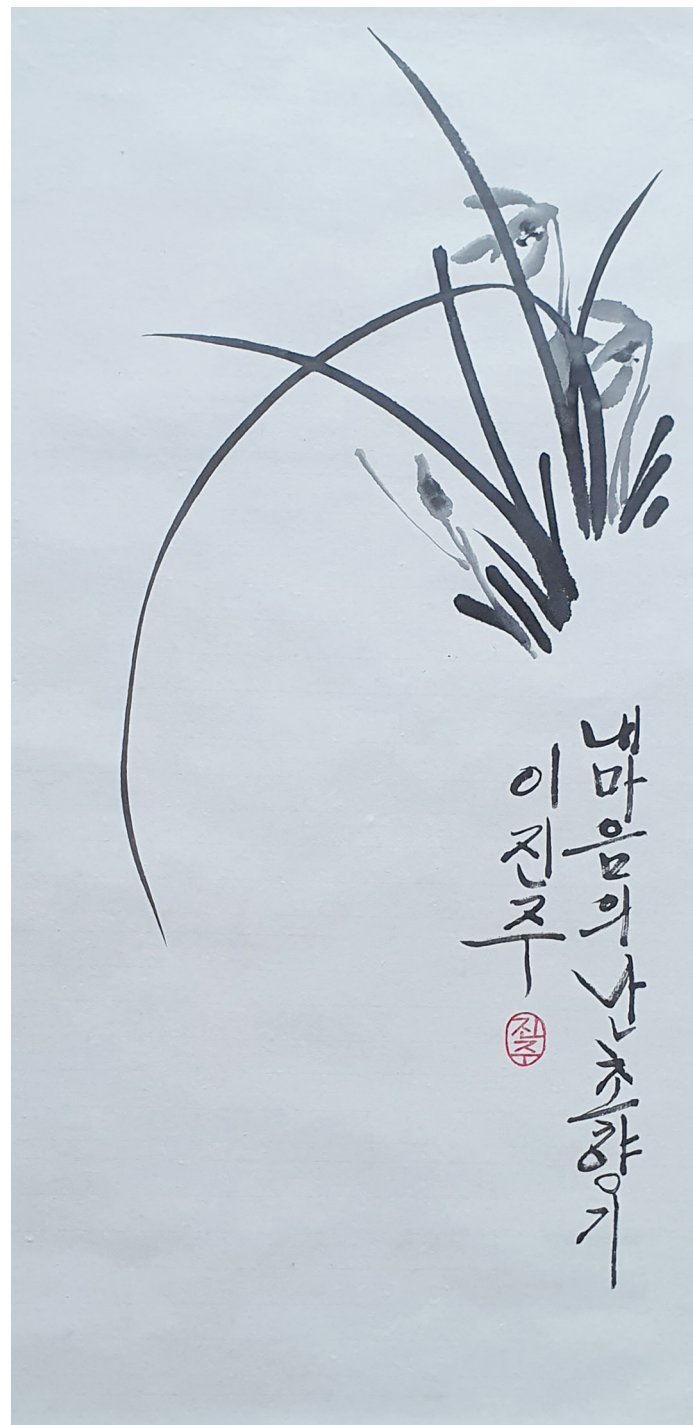 내마음의난초향기
이진주
진주